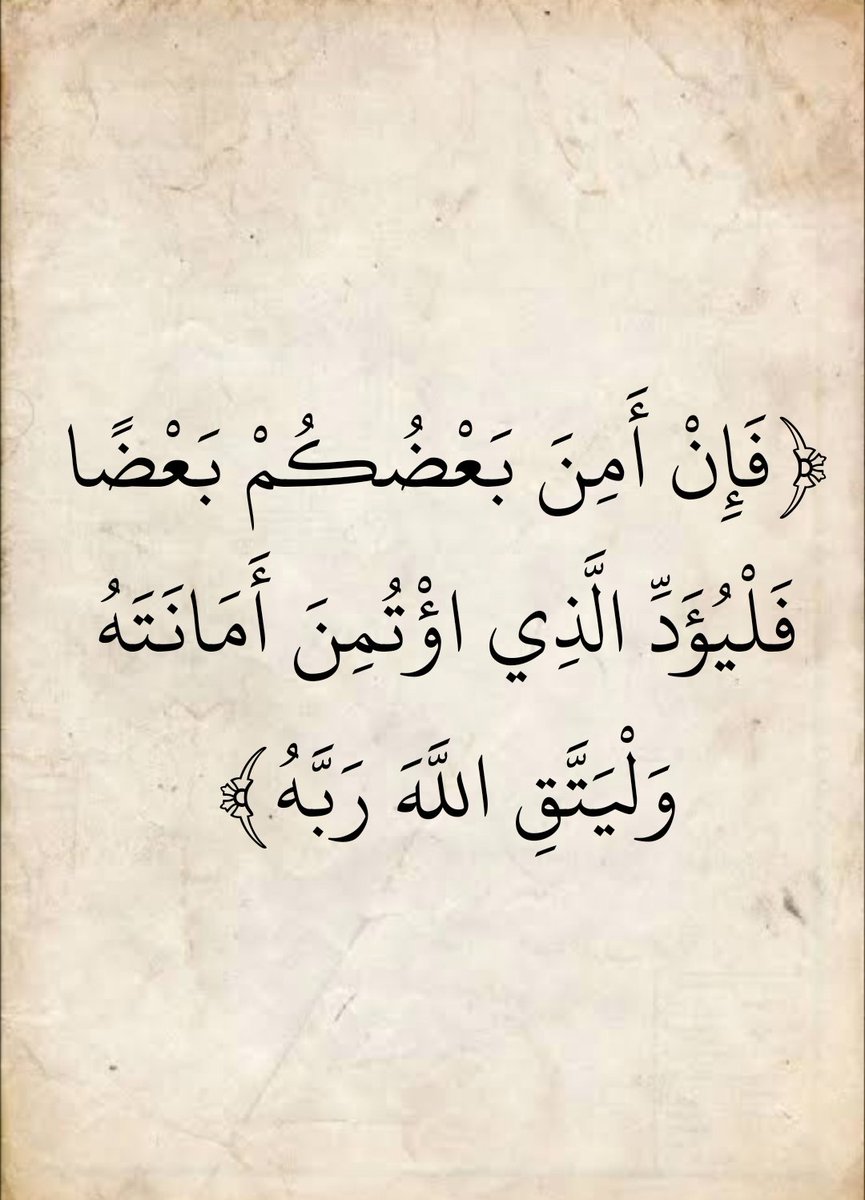 ﴿فَإِنْ أَمِنَ بَعْضُكُمْ بَعْضًا
فَلْيُؤَدِّ الَّذِي اؤْتُمِنَ أَمَانَتَهُ
وَلْيَتَّقِ اللَّهَ رَبَّهُ﴾